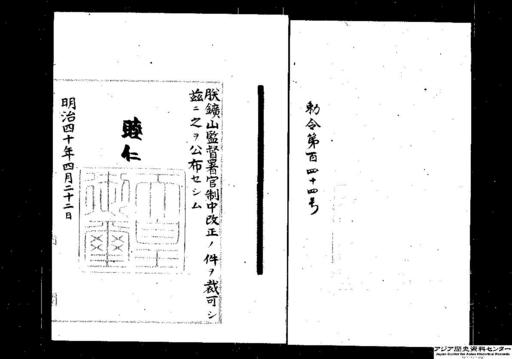 勅令第百四十四号
朕鑛山監督署官制中改正ノ件ヲ裁可シ
茲ニ之ヲ公布セシム
睦仁
天皇御璽
明治四十年四月二十二日
アジア歴史資料センター
Japan Center for Asian Historical Records